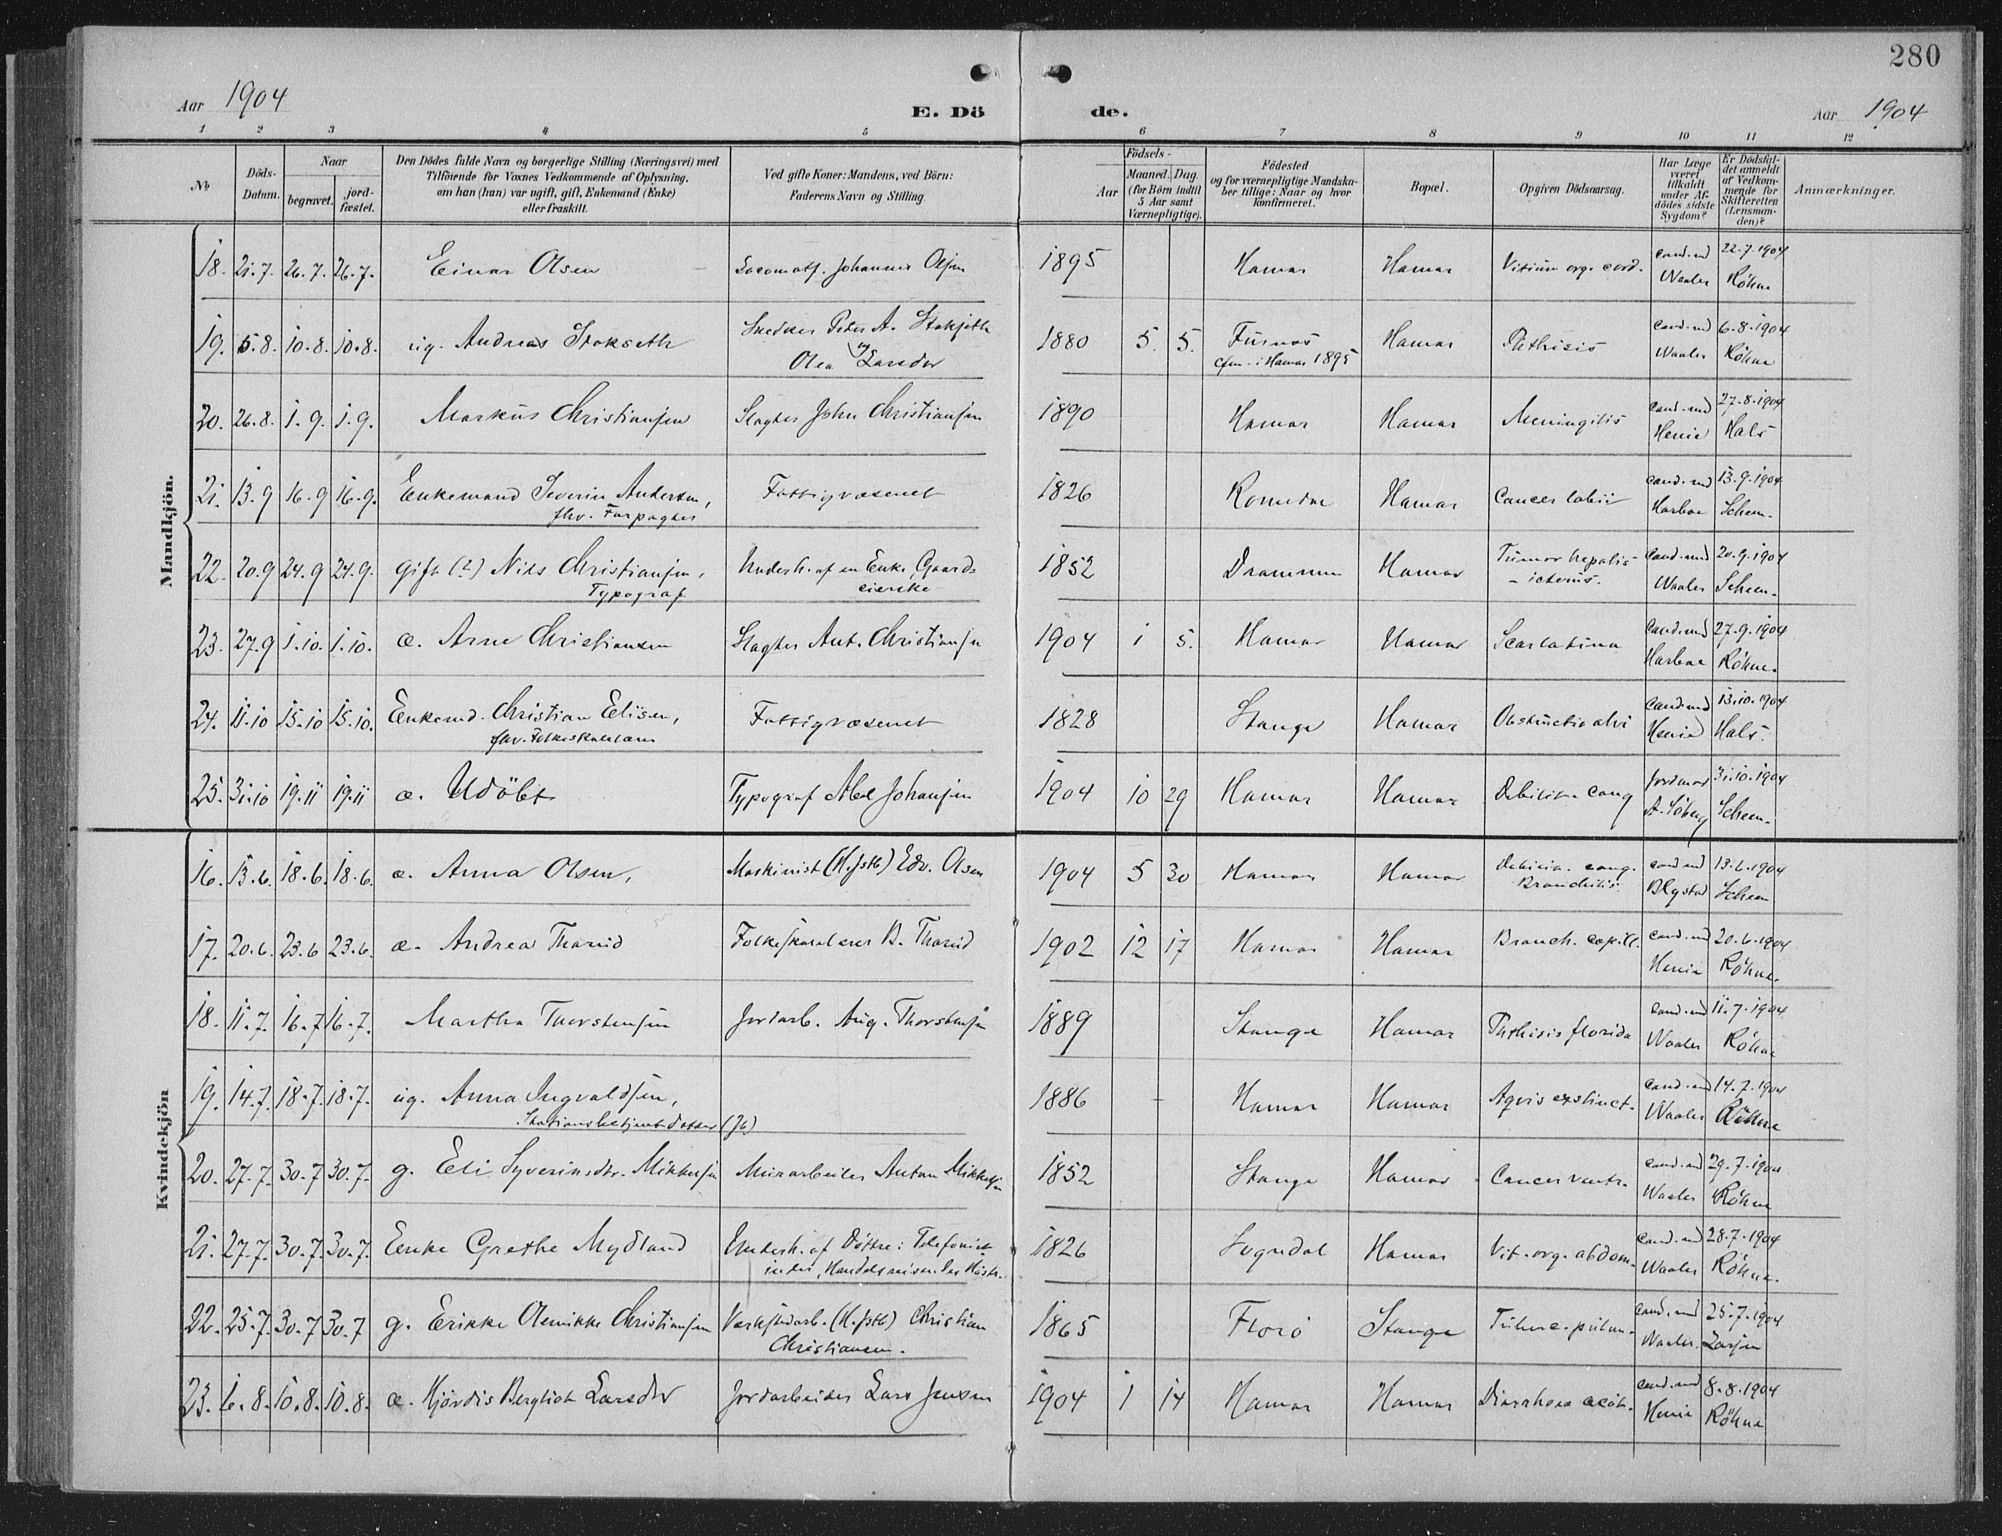 280
Aar 1904
E. Dö
de.
Aar 1904
1 2 3 4 5 6 7 8 9 10 11 12
No
Döds-
Datum.
Naar
begravet.
jord-
fæstet.
Den Dödes fulde Navn og borgerlige Stilling (Næringsvei) med
Tilföiende for Voxnes Vedkommende af Oplysning,
om han (hun) var ugift, gift, Enkemand (Enke)
eller fraskilt.
Ved gifte Koner: Mandens, ved Börn:
Faderens Navn og Stilling.
Födsels-
Aar
Maaned. Dag
(for Börn indtil
5 Aar samt
Værnepligtige).
Födested
og for værnepligtige Mandska-
ber tillige: Naar og hvor
konfirmeret.
Bopæl.
Opgiven Dödsaarsag.
Har Læge
været
tilkaldt
under Af-
dödes sidste
Sygdom?
Er Dödsfal-
det anmeldt
af Vedkom-
mende for
Skifteretten
(Lensman-
den)?
Anmærkninger.
Mandkjön.
18. 21.7. 26.7. 26.7. Einar Olsen Locomotf. Johannes Olsen 1895 Hamar Hamar Vitium org. cord. cand. md 22.7.1904
Waaler Röhne
19. 5.8. 10.8. 10.8. ug. Andreas Stokseth Snedker Peter A. Stokseth 1880 5. 5. Furnes Hamar Phthisis cand. md 6.8.1904
og Olea Larsdtr cfm. i Hamar 1895 Waaler Röhne
20. 26.8. 1.9. 1.9. Markus Christiansen Slagter John Christiansen 1890 Hamar Hamar Meningitis cand. md 27.8.1904
Henie Hals
21. 13.9 16.9 16.9. Enkemand Severin Andersen, Fattigvæsenet 1826 Romedal Hamar Cancer labii cand. md 13.9.1904
fhv. Forpagter Harboe Scheen.
22. 20.9 24.9 24.9. gift (?) Nils Christiansen, Undersh. af en Enke, Gaard- 1852 Drammen Hamar Tumor hepatis cand. md 20.9.1904
Typograf eierske - icterus. Waaler Scheen.
23. 27.9 1.10. 1.10. æ. Arne Christiansen Slagter Ant. Christiansen 1904 1 5. Hamar Hamar Scarlatina cand. md 27.9.1904
Harboe Röhne.
24. 11.10 15.10 15.10. Enkemd. Christian Elisen, Fattigvæsenet 1828 Stange Hamar Obstructio alvi cand. md 13.10.1904
fhv. Folkeskolelærer Henie Hals.
25. 31.10 19.11 19.11 æ. Udöbt Typograf Abel Johansen 1904 10 29 Hamar Hamar Debilit. cong Jordmor 31.10.1904
A. Söberg Scheen.
Kvindekjön
16. 13.6. 18.6. 18.6. æ. Anna Olsen, Maskinist (H.jstb) Edv. Olsen 1904 5 30 Hamar Hamar Debilit. cong. cand. md 13.6.1904
Bronchitis Blystad Scheen
17. 20.6. 23.6 23.6. æ. Andrea Thorud Folkeskolelærer B. Thorud 1902 12 17 Hamar Hamar Bronch. capill. cand. md 20.6.1904
Henie Röhne.
18. 11.7. 16.7 16.7. Martha Thorstensen Jordarb. Aug. Thorstensen 1889 Stange Hamar Phthisis florida cand. md 11.7.1904
Waaler Röhne
19. 14.7. 18.7. 18.7. ug. Anna Ingvaldsen, 1886 - Hamar Hamar cand. md 14.7.1904
Stationsbetjents Datter Waaler Röhne
20. 27.7. 30.7 30.7. g. Eli Syverinsdtr. Mikkelsen Murarbeider Anton Mikkelsen 1852 Stange Hamar Cancer ventr. cand. md 29.7.1904
Waaler Röhne
21. 27.7. 30.7. 30.7. Enke Grethe Mydland Undersh. af Döttre: Telefonist- 1826 Sogndal Hamar Vit. org. abdom. cand. md 28.7.1904
inder, Handelsreisendes Waaler Röhne.
22. 25.7. 30.7 30.7 g. Erikke Olemikke Christiansen Værkstedarb. (H.jstb) Christian 1865 Florö Stange Tuberc. pulm. cand. md 25.7.1904
Christiansen. Waaler. Larsen
23. 6.8. 10.8. 10.8. æ. Hjördis Bergliot Larsdtr Jordarbeider Lars Jensen 1904 1 14 Hamar Hamar Diarrhoea acut. cand. md 8.8.1904
Henie Röhne